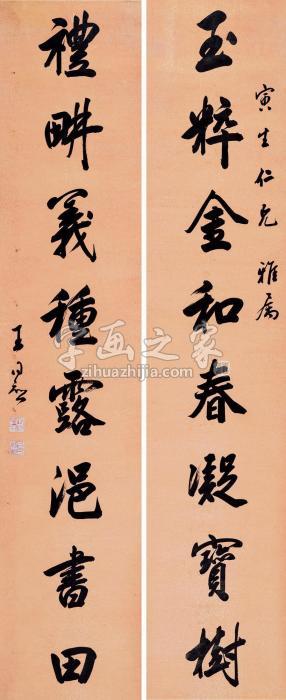 寅生仁兄雅属
玉粹金和春凝寶樹
禮耕義種露浥書田
王同愈
字画之家
zihuazhijia.com